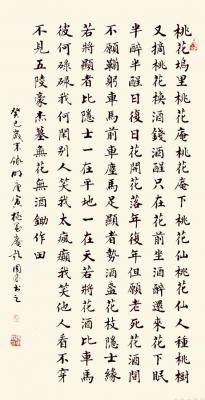 桃花塢里桃花庵桃花庵下桃花仙桃花仙人種桃樹
又摘桃花換酒錢酒醒只在花前坐酒醉還來花下眠
半醉半醒日復日花開花落年復年但願老死花酒間
不願鞠躬車馬前車塵馬足顯者勢酒盞花枝隱士緣
若將顯者比隱士一在平地一在天若將花酒比車馬
彼何碌碌我何閑別人笑我太瘋癲我笑他人看不穿
不見五陵豪杰墓無花無酒鋤作田
癸巳歲末錄明唐寅桃花庵歌書之